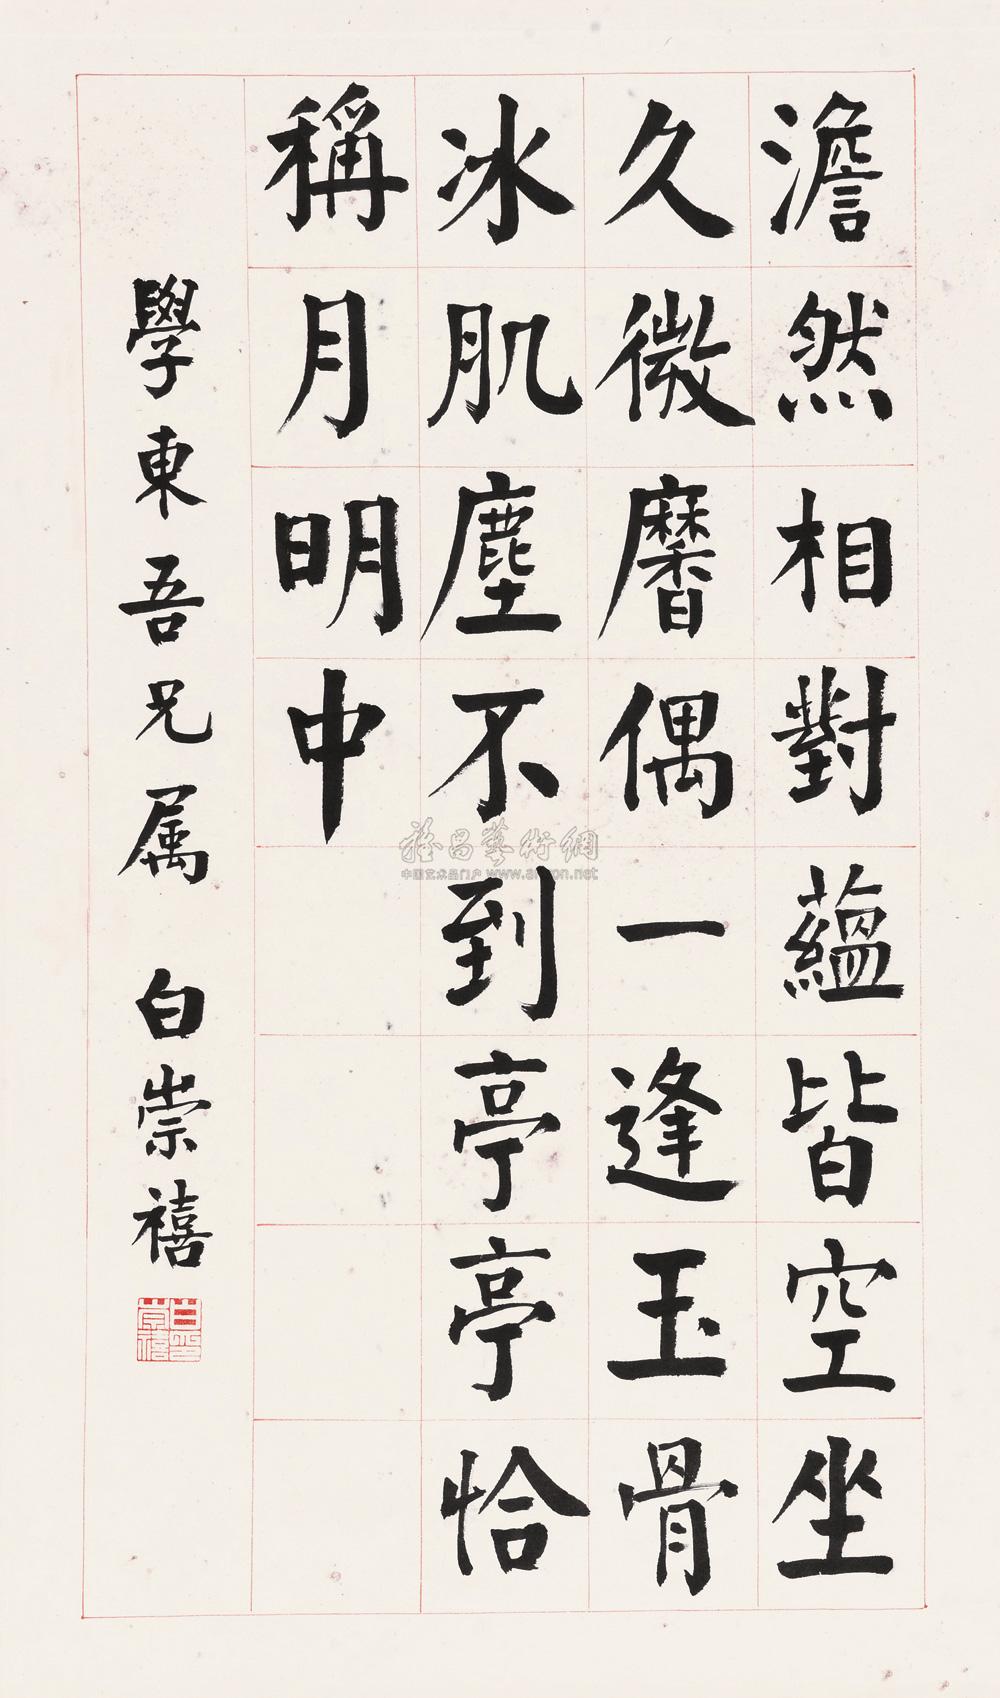 澹然相對蘊皆空坐
久微黁偶一逢玉骨
冰肌塵不到亭亭恰
稱月明中
學東吾兄属 白崇禧
白印崇禧
雅昌藝術網
中国艺术品门户 www.artron.net